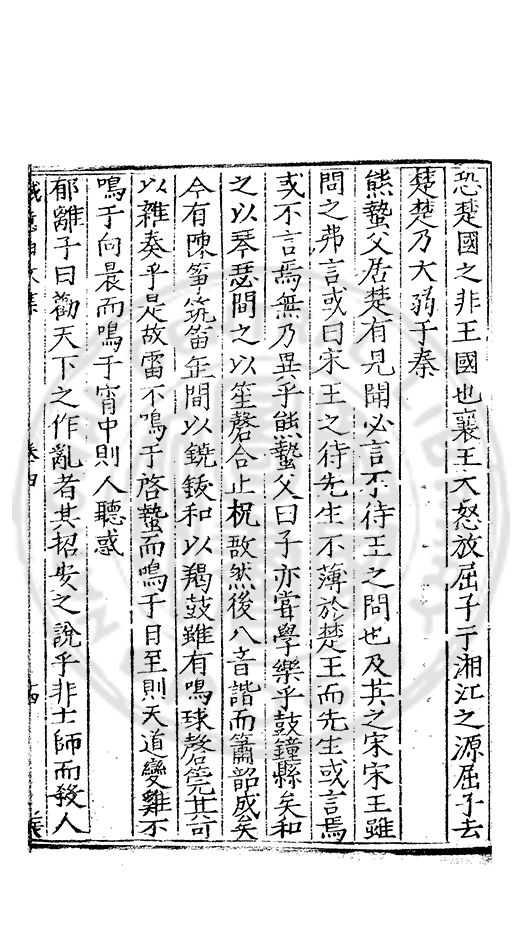 恐楚國之非王國也襄王大怒放屈子于湘江之源屈子去
楚楚乃大弱于秦
熊蟄父居楚有見聞必言不待王之問也及其之宋宋王雖
問之弗言或曰宋王之待先生不薄於楚王而先生或言焉
或不言焉無乃異乎熊蟄父曰子亦嘗學樂乎鼓鐘縣矣和
之以琴瑟間之以笙磬合止柷敔然後八音諧而簫韶成矣
今有陳箏筑笛缶間以鐃鈸和以羯鼓雖有鳴球磬筦其可
以雜奏乎是故雷不鳴于啓蟄而鳴于日至則天道變雞不
鳴于向晨而鳴于宵中則人聽惑
郁離子曰勸天下之作亂者其招安之說乎非士師而殺人
卷四